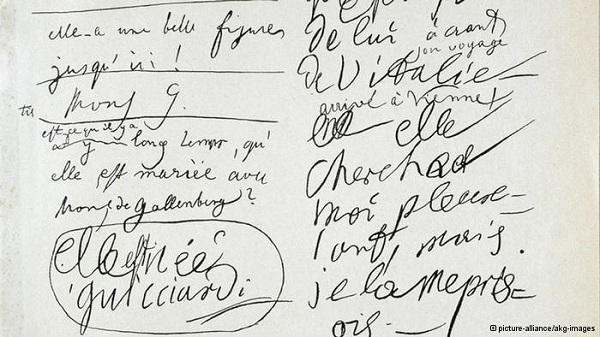 elle-a une belle figures
jusqu'ici !
Mons G.
est ce qu'il y a
long temps, qu'
elle est mariée avec
Mons de Gallenberg ?
elle est née
guicciardi
de lui avant
son voyage
de l'italie —
arrivé à Vienne
elle
cherchoit
moi pleur—
ant, mais
je la mepris—
ois. —
picture-alliance/akg-images